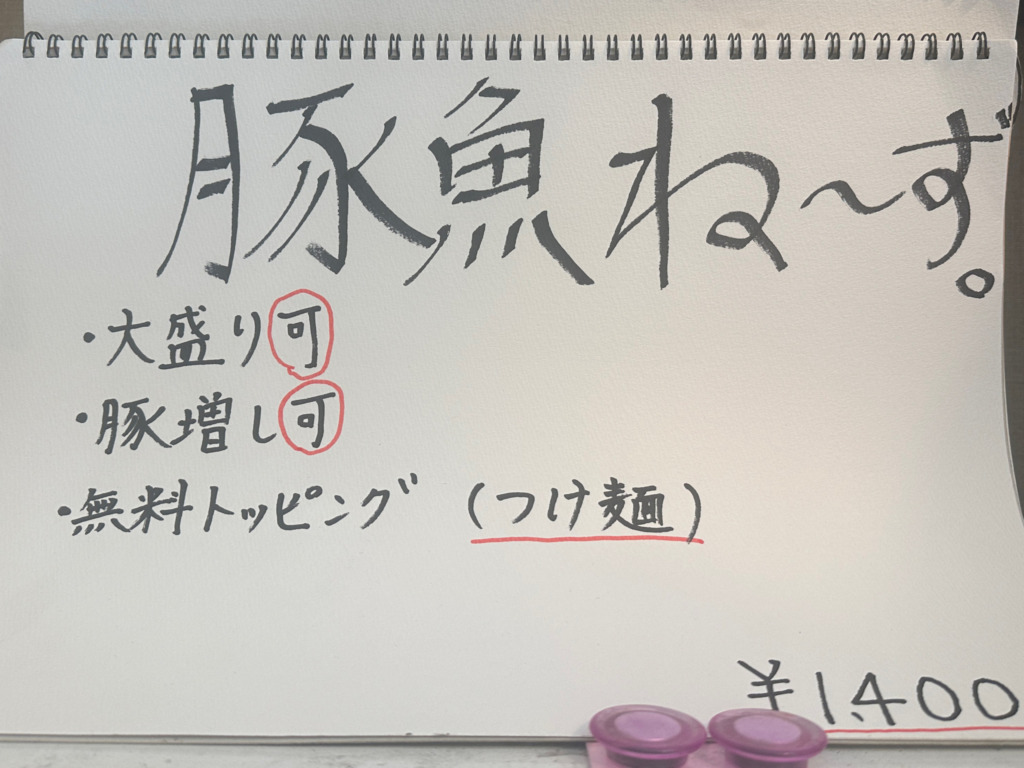 豚魚ね〜ず。
・大盛り可
・豚増し可
・無料トッピング (つけ麺)
¥1,400